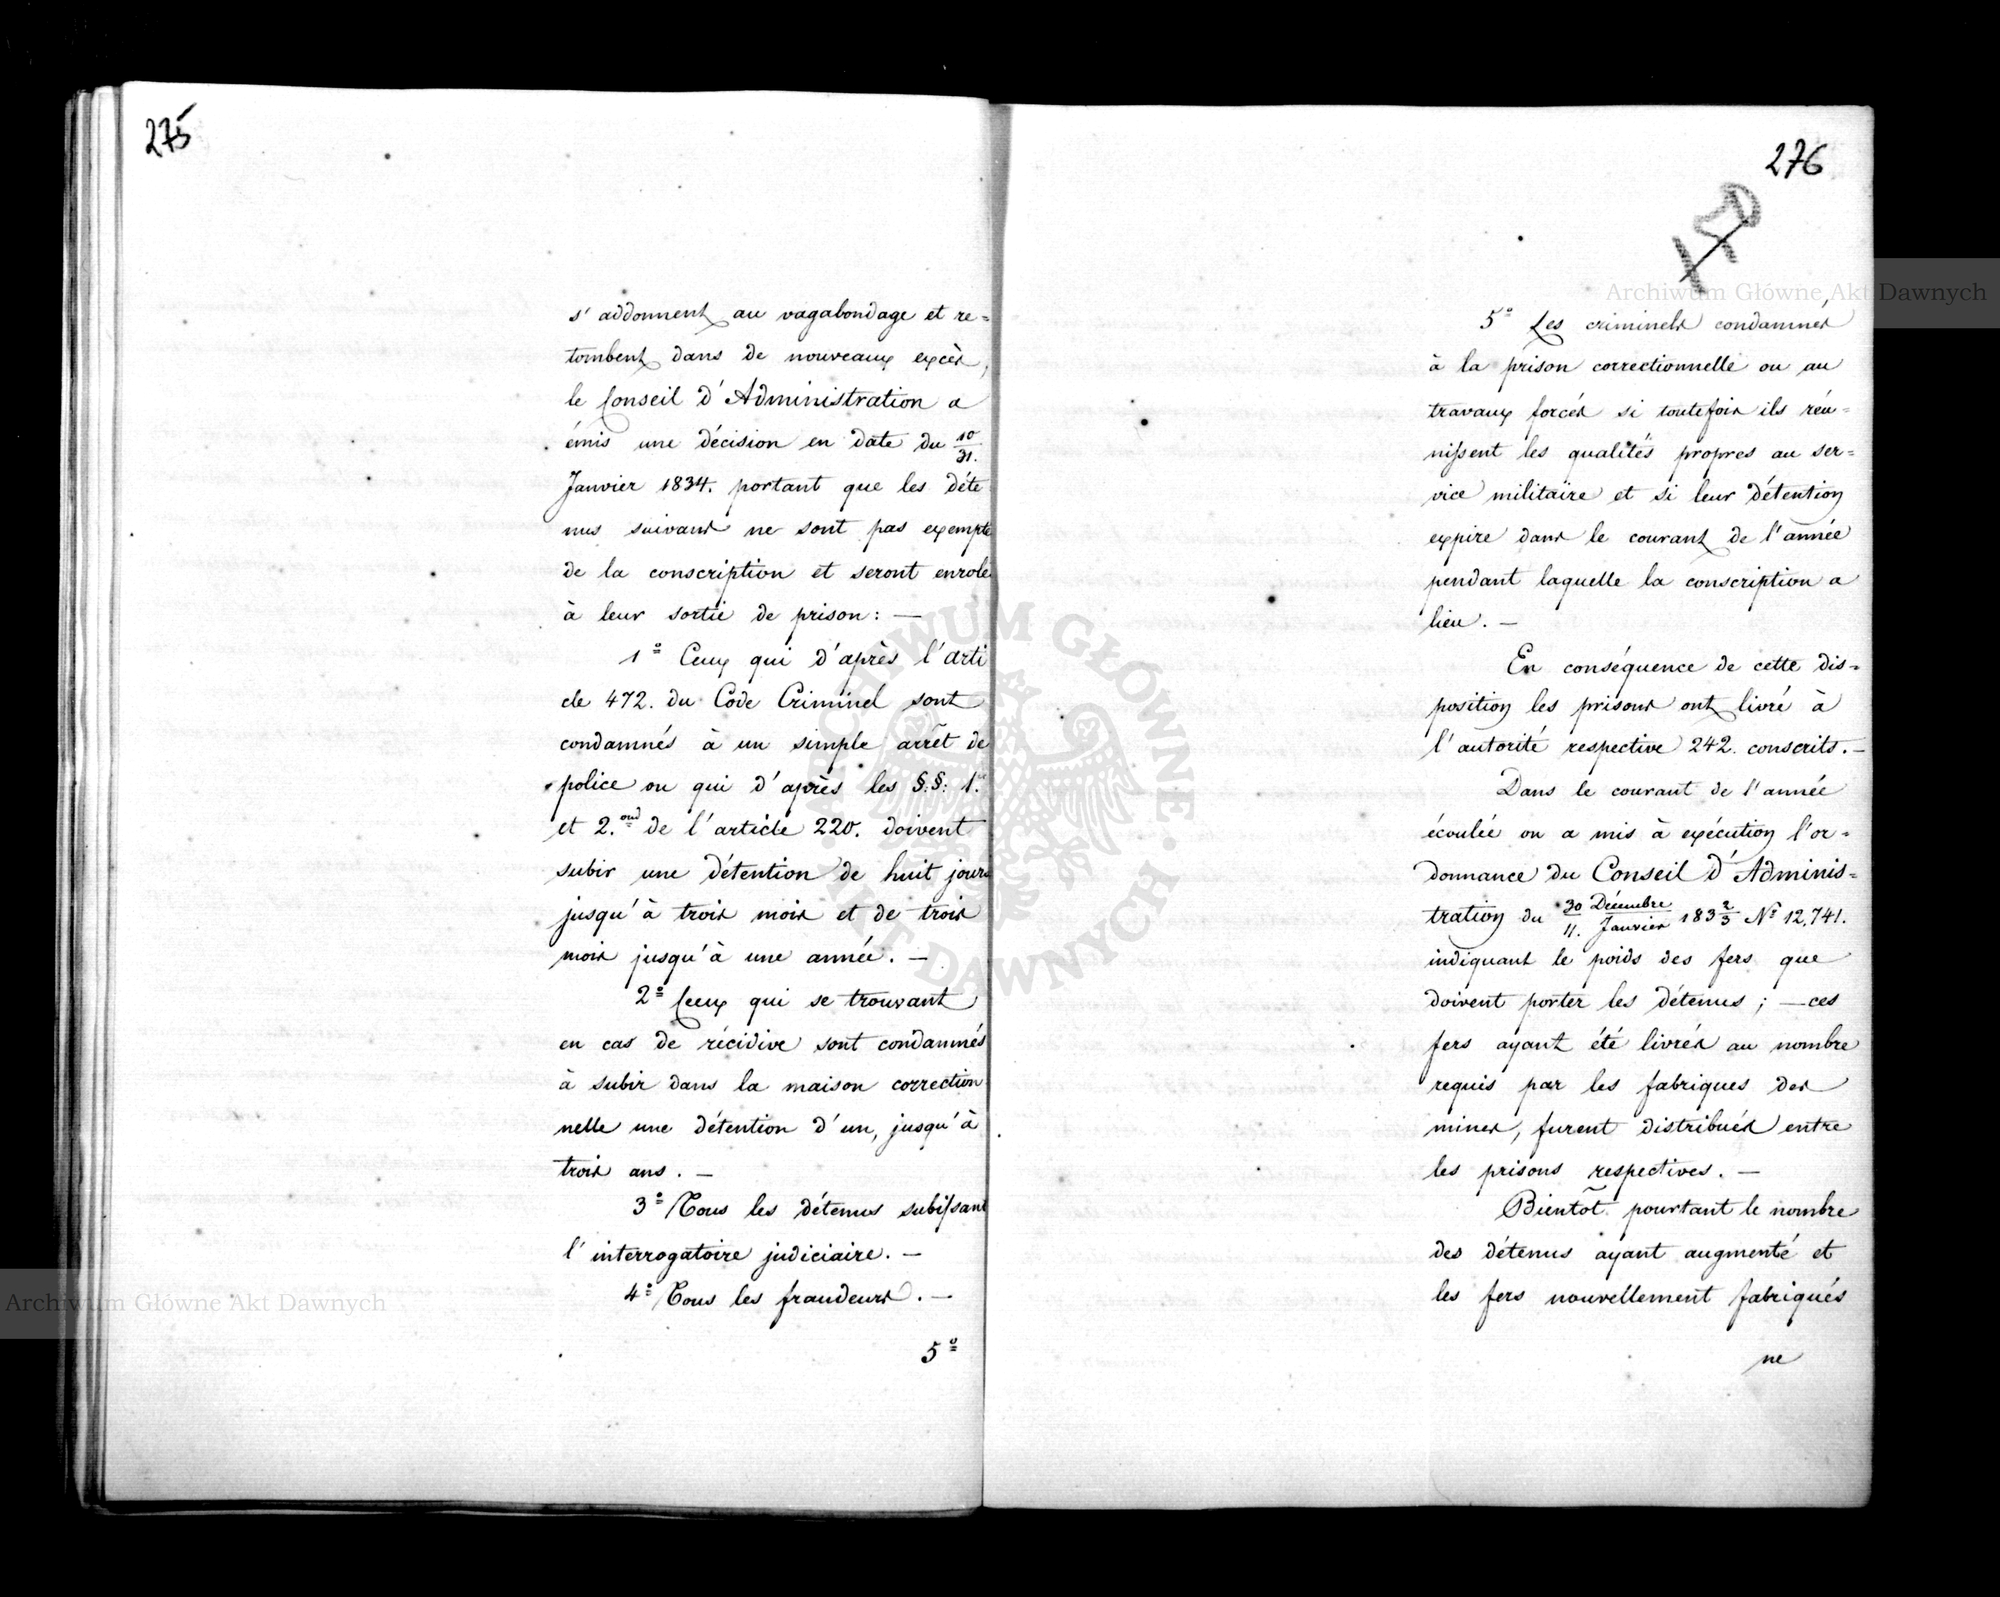 275
s'addonnent au vagabondage et re=
tombent dans de nouveaux excès,
le Conseil d'Administration a
émis une décision en date du 10/31.
Janvier 1834. portant que les déte
nus suivans ne sont pas exempts
de la conscription et seront enrolé
à leur sortie de prison: —
1º Ceux qui d'après l'arti
cle 472. du Code Criminel sont
condamnés à un simple arrêt de
police ou qui d'après les §.§: 1.
et 2.ond de l'article 220. doivent
subir une détention de huit jours
jusqu'à trois mois et de trois
mois jusqu'à une année. —
2º Ceux qui se trouvant
en cas de récidive sont condamnés
à subir dans la maison correction
nelle une détention d'un, jusqu'à
trois ans. —
3º Tous les détenus subissant
l'interrogatoire judiciaire. —
4º Tous les fraudeurs. —
5º
276
150
5º Les criminels condamnés
à la prison correctionnelle ou au
travaux forcés si toutefois ils réu=
nissent les qualités propres au ser=
vice militaire et si leur détention
expire dans le courant de l'année
pendant laquelle la conscription a
lieu. —
En conséquence de cette dis=
position les prisons ont livré à
l'autorité respective 242. conscrits. —
Dans le courant de l'année
écoulée on a mis à exécution l'or=
donnance du Conseil d'Adminis=
tration du 30 Décembre/11. Janvier 183 2/3 Nº 12,741.
indiquant le poids des fers que
doivent porter les détenus; — ces
fers ayant été livrés au nombre
requis par les fabriques des
mines, furent distribués entre
les prisons respectives. —
Bientôt pourtant le nombre
des détenus ayant augmenté et
les fers nouvellement fabriqués
ne
Archiwum Główne Akt Dawnych
Archiwum Główne Akt Dawnych
ARCHIWUM GŁÓWNE · AKT DAWNYCH ·